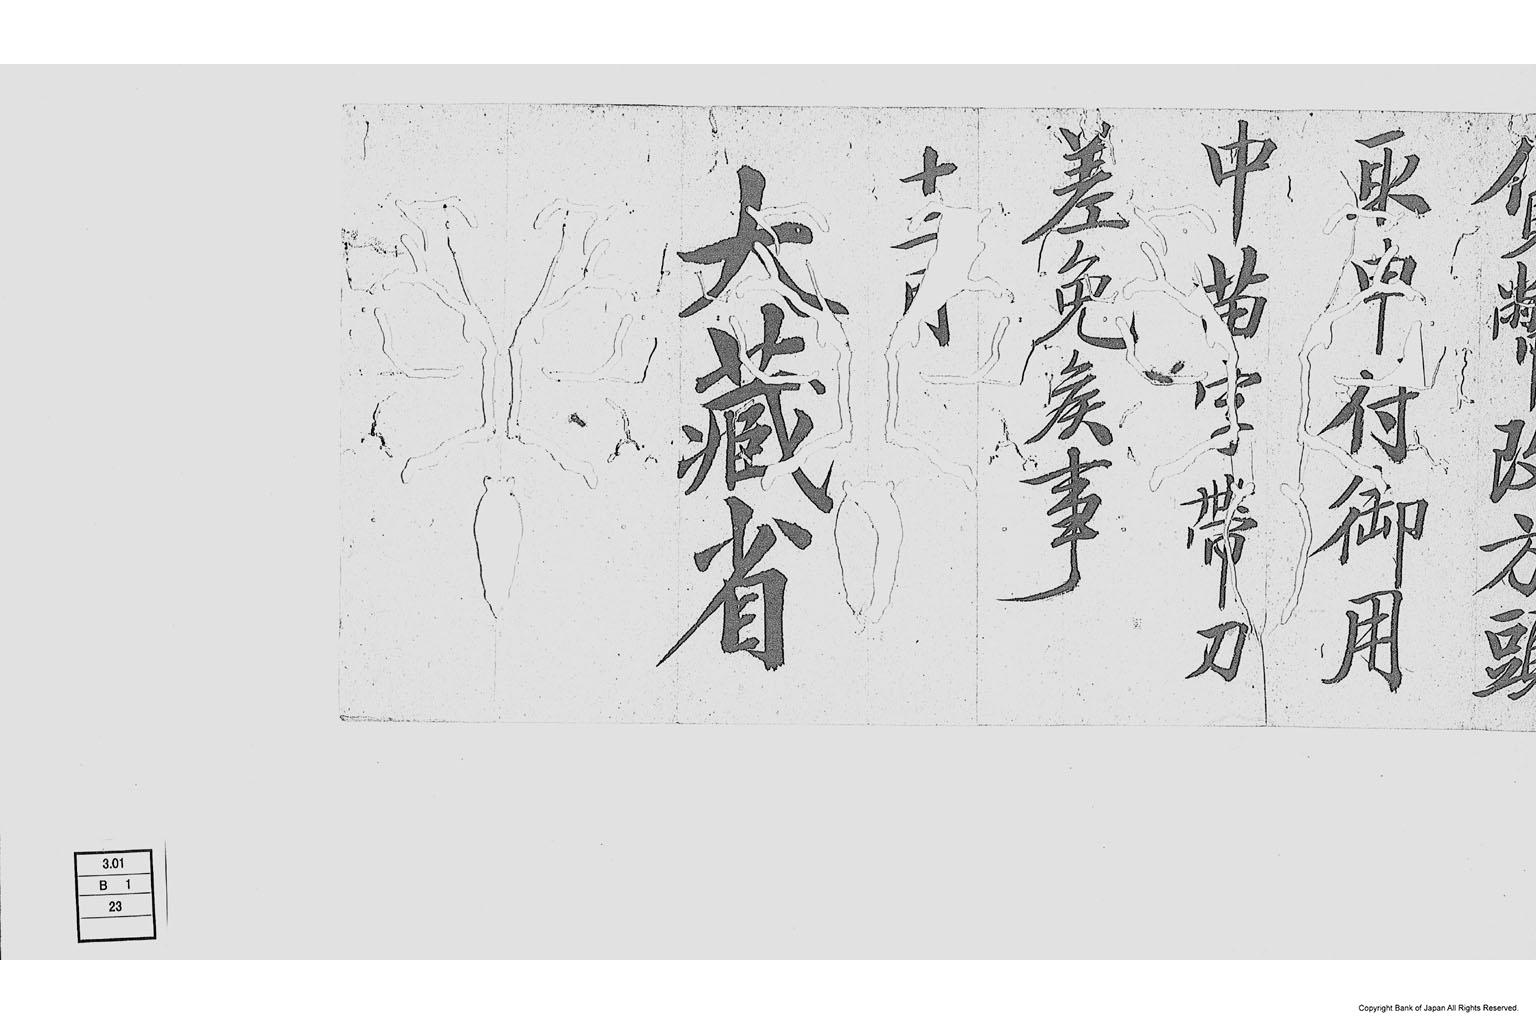 貨幣改方頭
取申付御用
中苗字帶刀
差免候事
十二月
大藏省
3.01
B 1
23
Copyright Bank of Japan All Rights Reserved.